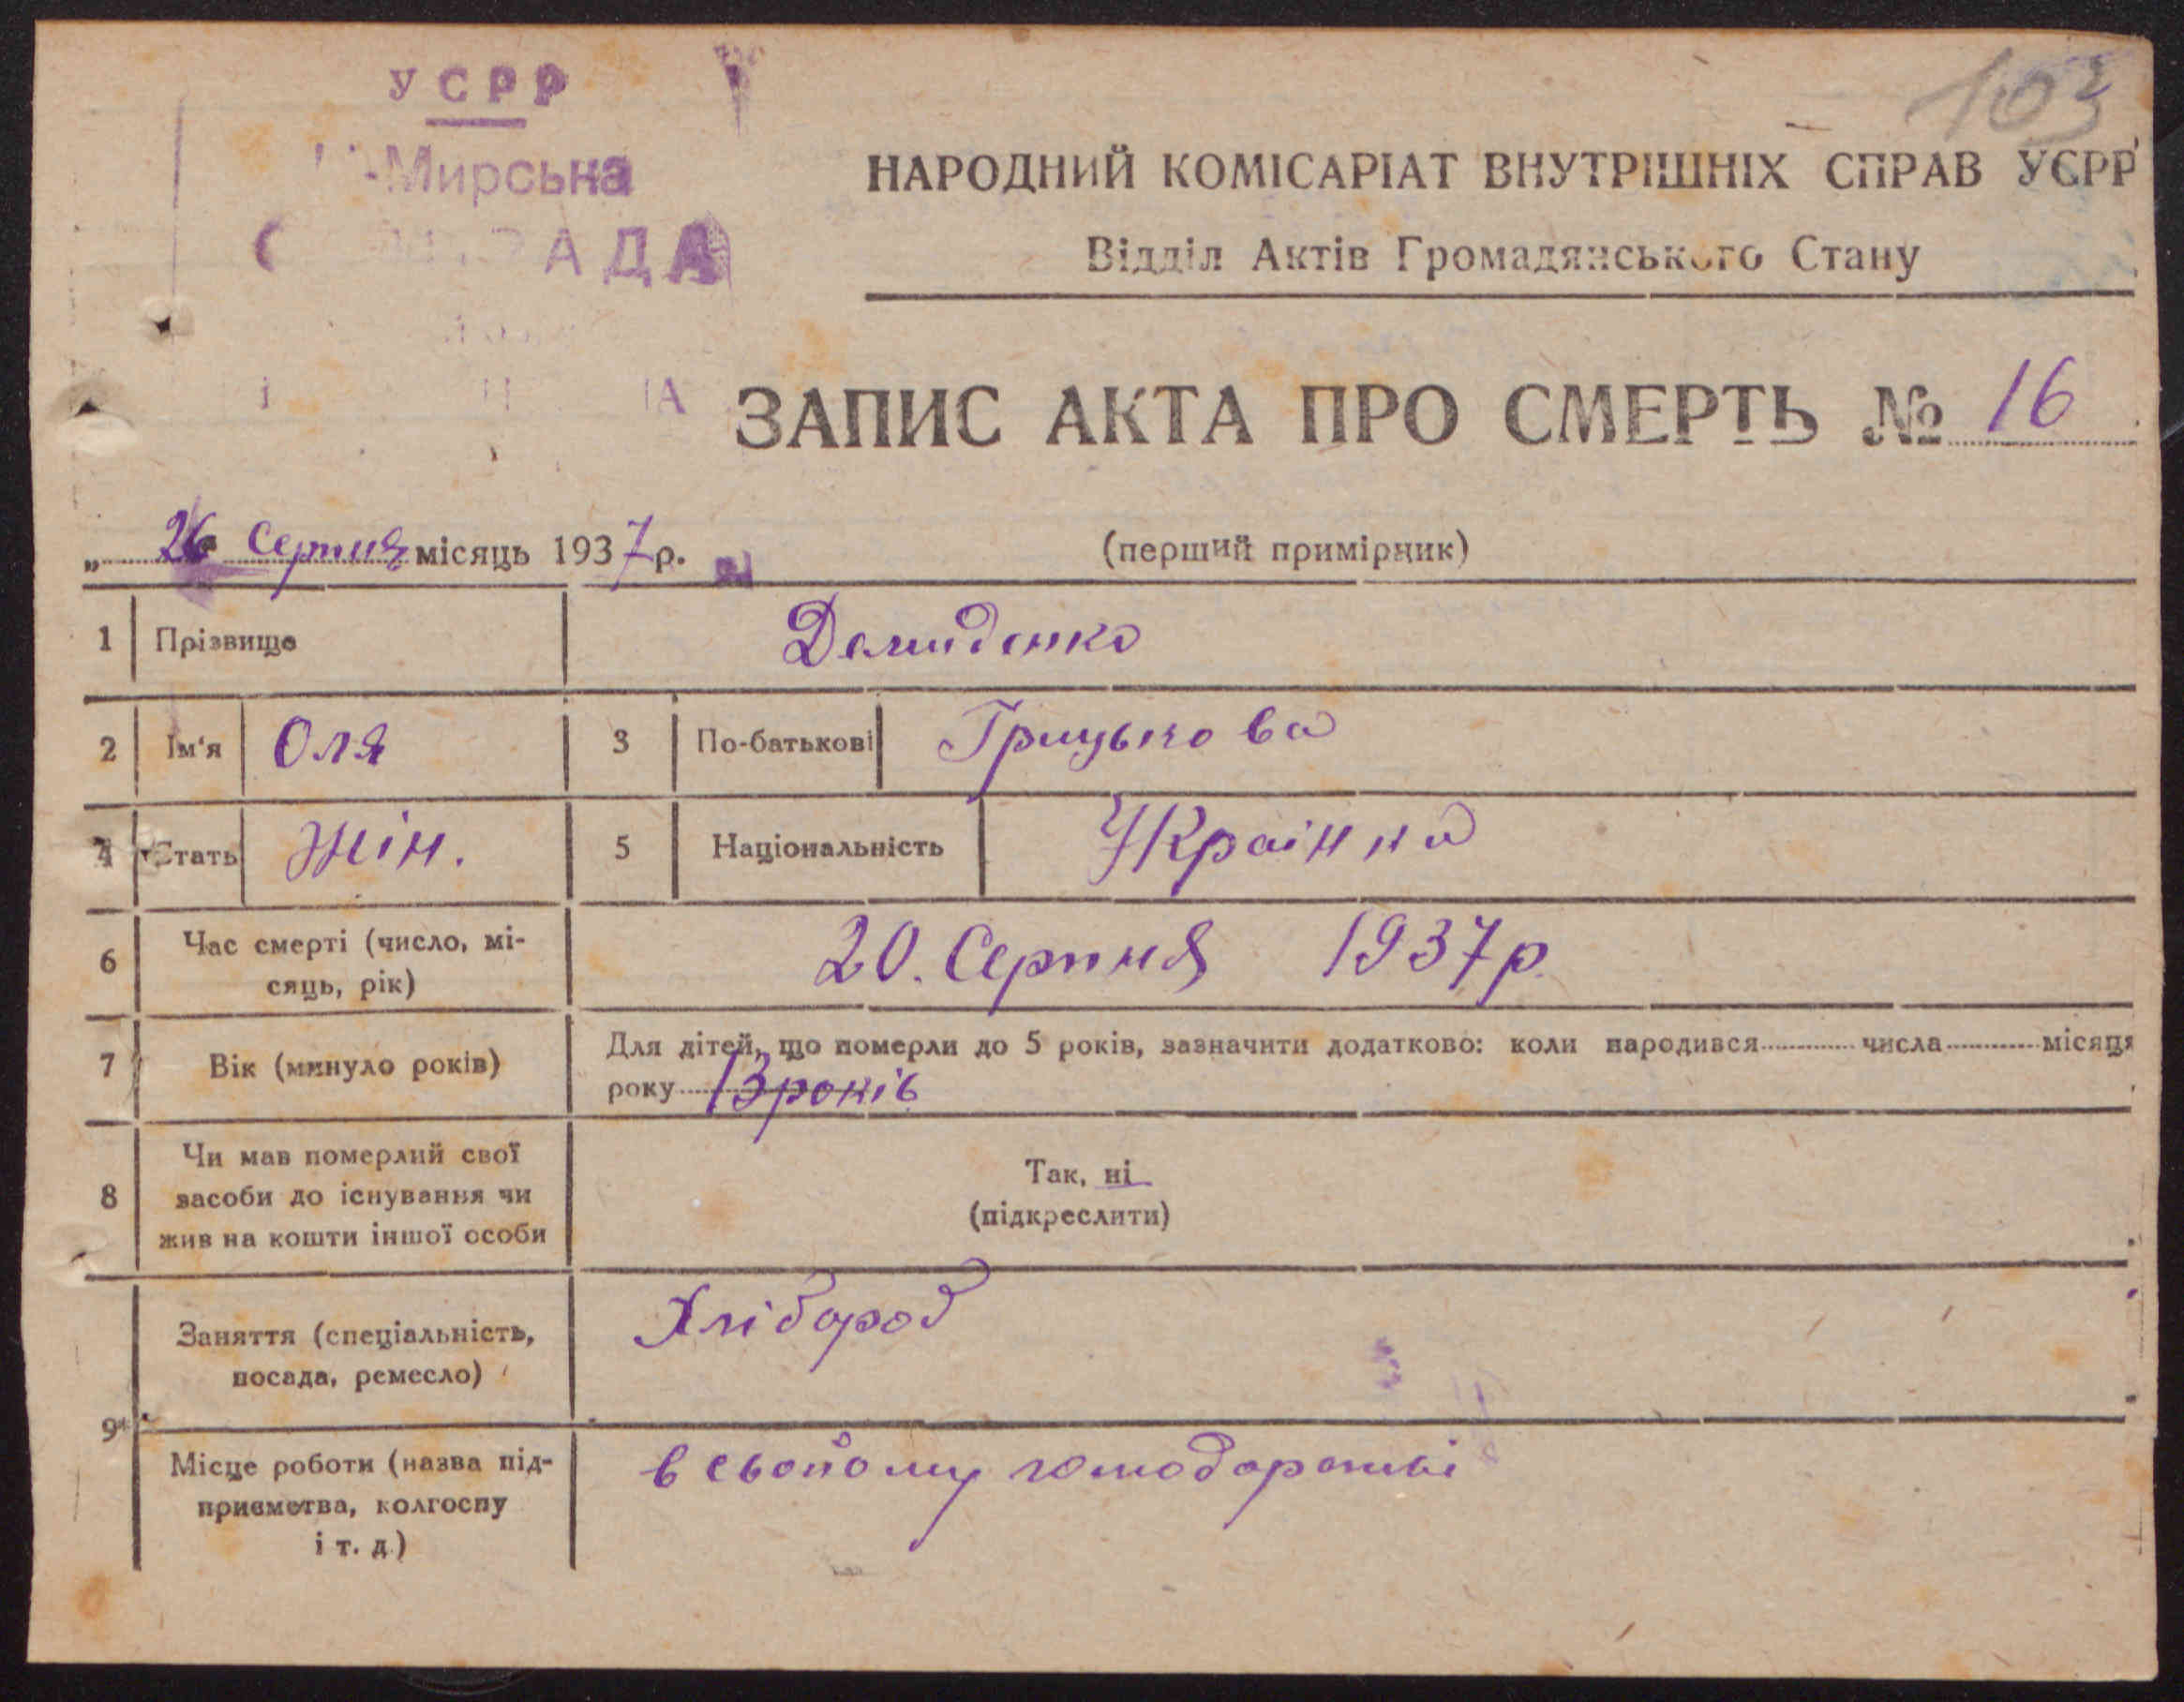 103
УСРР
-Мирська
РАДА
НАРОДНИЙ КОМІСАРІАТ ВНУТРІШНІХ СПРАВ УСРР
Відділ Актів Громадянського Стану
ЗАПИС АКТА ПРО СМЕРТЬ № 16
„ 26 Серпня місяць 1937 р.
(перший примірник)
1 Прізвище Демиденко
2 Ім'я Оля 3 По-батькові Грицькова
4 Стать жін. 5 Національність Українка
6 Час смерті (число, мі-
сяць, рік) 20. Серпня 1937 р.
7 Вік (минуло років) Для дітей, що померли до 5 років, зазначити додатково: коли народився числа місяця
року 13 років
8 Чи мав померлий свої
засоби до існування чи
жив на кошти іншої особи
Так, ні
(підкреслити)
9* Заняття (спеціальність,
посада, ремесло) Хлібороб
Місце роботи (назва під-
приємства, колгоспу
і т. д.)
в свойому